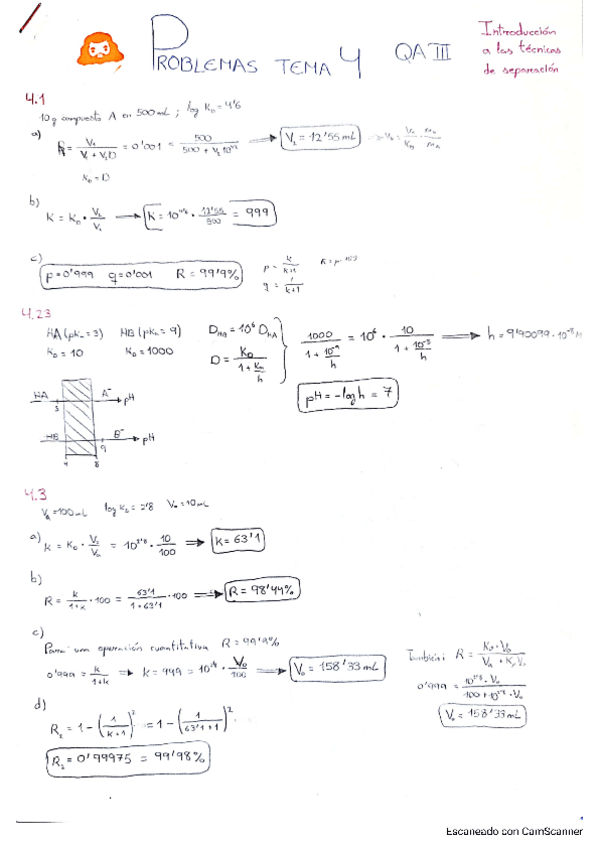 PROBLEMAS TEMA 4 QA III
Introducción
a las técnicas
de separación
4.1
10g compuesto A en 500 mL ; log K_D = 4'6
a)
R = V₁ / (V₁ + V₂D) = 0'001 = 500 / (500 + V₂ 10^4'6) ⟹ V₂ = 12'55 mL
K_D = D
b)
K = K_D · V₂/V₁ → K = 10^4'6 · 12'55/500 = 999
c)
p = 0'999 q = 0'001 R = 99'9%
p = k/(k+1)
q = 1/(k+1)
4.23
HA (pKa = 3) HB (pKa = 9)
K_D = 10 K_D = 1000
D_HB = 10⁶ D_HA
D = K_D / (1 + Ka/h)
1000 / (1 + 10⁻⁹/h) = 10⁶ · 10 / (1 + 10⁻³/h) ⟹ h = 9'90099 · 10⁻⁸ M
pH = -log h = 7
HA A⁻ pH
3
HB B⁻ pH
9
4 8
4.3
V_a = 100 mL log K_D = 2'8 V_o = 10 mL
a) k = K_D · V_o/V_a = 10^2'8 · 10/100 ⟹ k = 63'1
b)
R = k/(1+k) · 100 = 63'1/(1+63'1) · 100 ⟹ R = 98'44%
c)
Para una operación cuantitativa R = 99'9%
0'999 = k/(1+k) ⟹ k = 999 = 10^2'8 · V_o/100 ⟹ V_o = 158'33 mL
También: R = K_D · V_o / (V_a + K_D V_o)
0'999 = 10^2'8 · V_o / (100 + 10^2'8 · V_o)
V_o = 158'33 mL
d)
R₂ = 1 - (1/(k+1))² = 1 - (1/(63'1+1))²
R₂ = 0'99975 = 99'98%
Escaneado con CamScanner